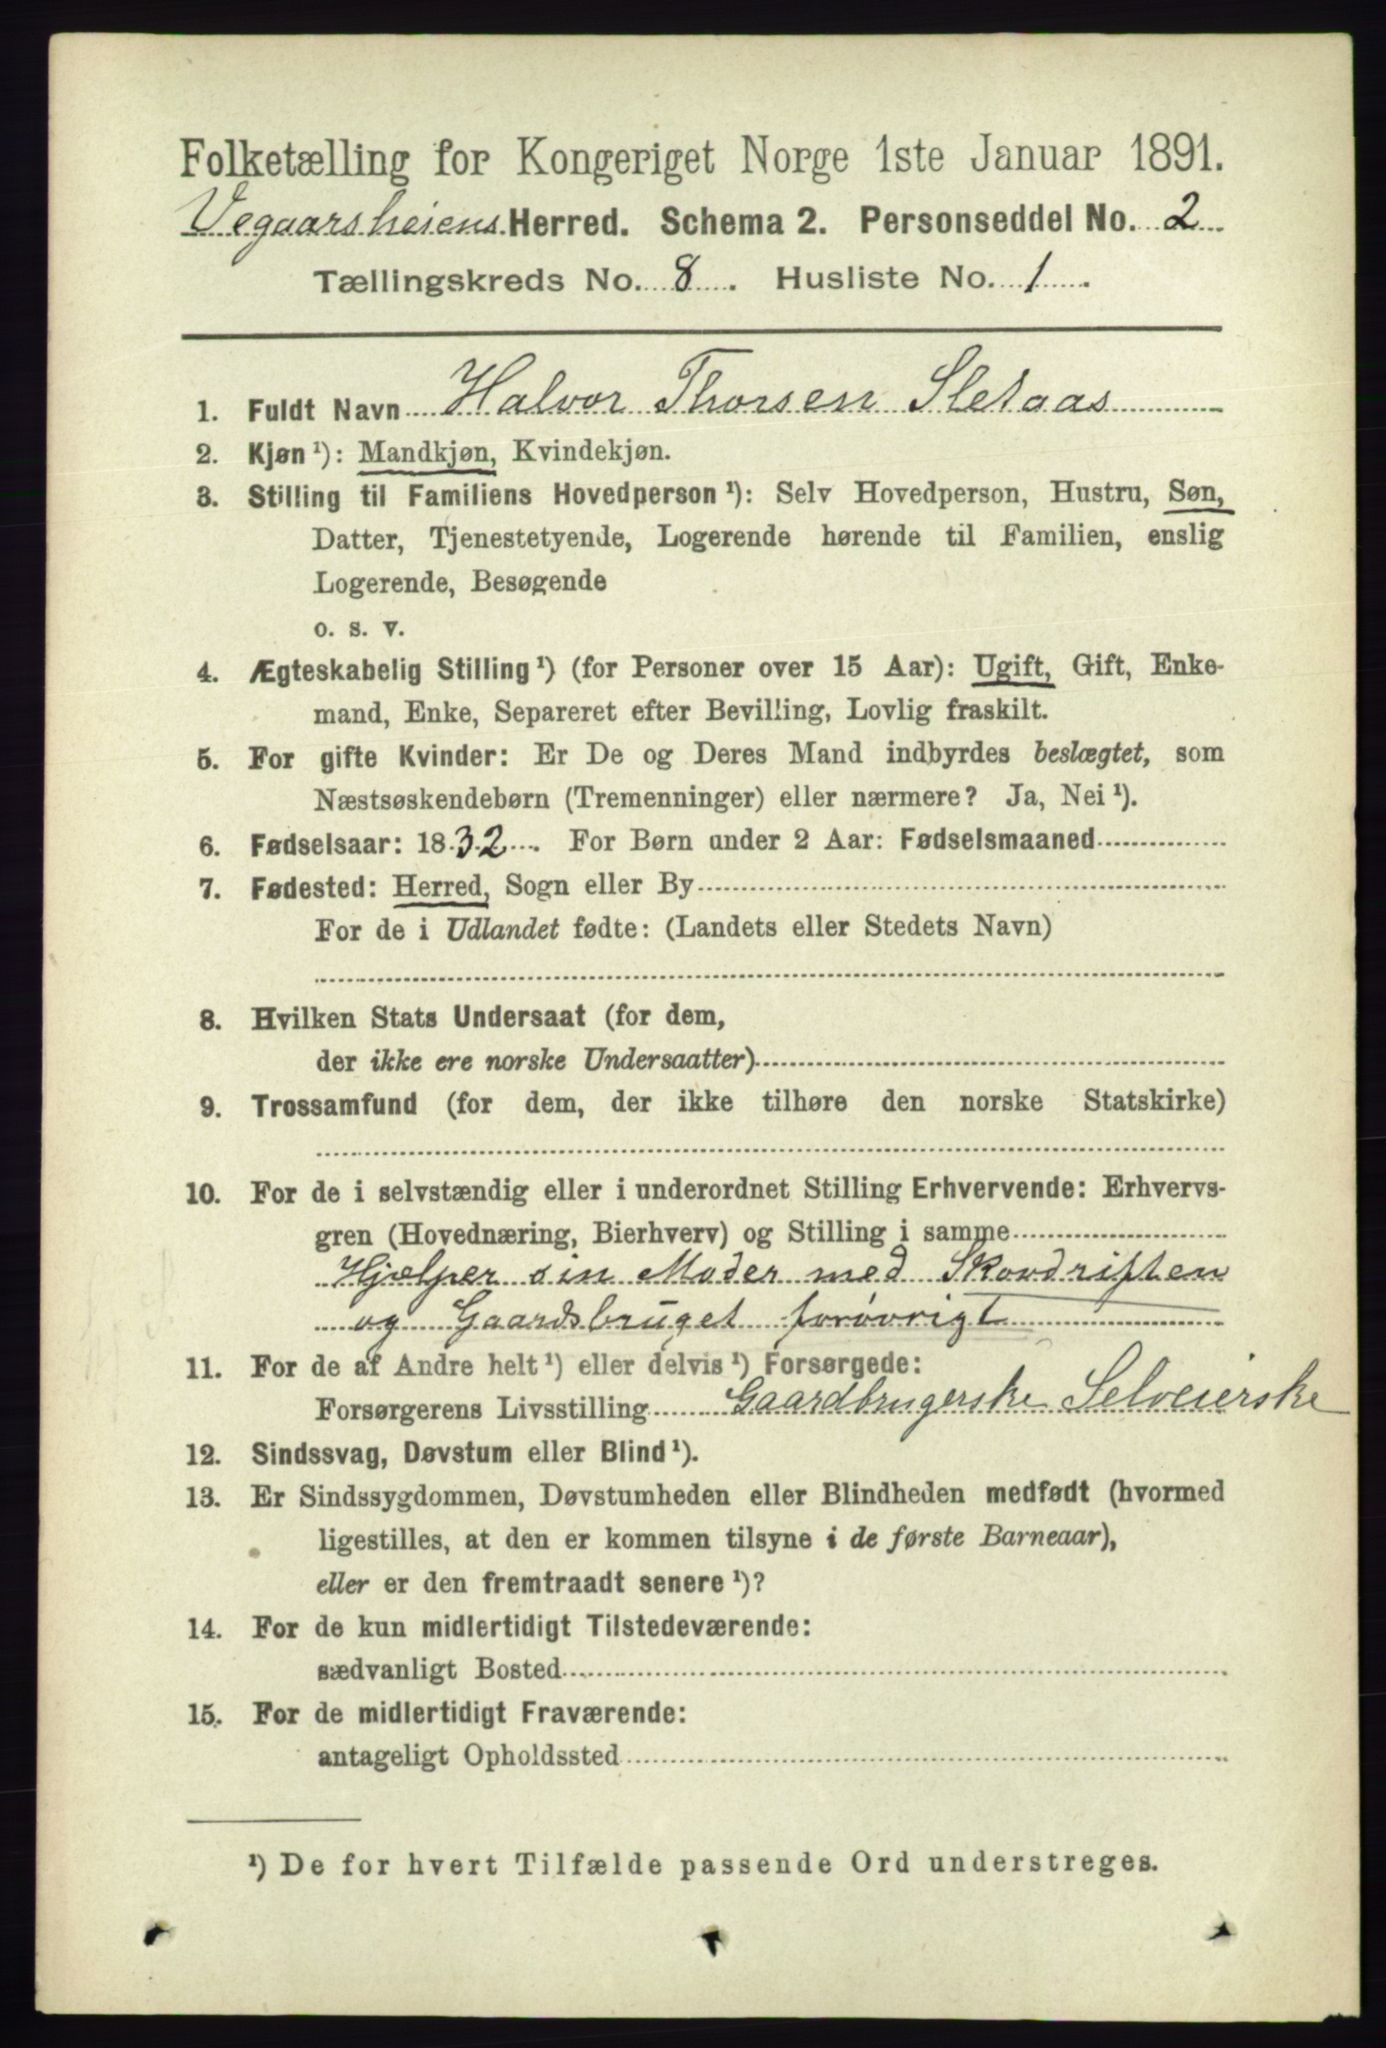 Folketælling for Kongeriget Norge 1ste Januar 1891.
Vegaarsheiens Herred. Schema 2. Personseddel No. 2
Tællingskreds No. 8. Husliste No. 1.
1. Fuldt Navn Halvor Thorsen Sletaas
2. Kjøn ¹): Mandkjøn, Kvindekjøn.
3. Stilling til Familiens Hovedperson ¹): Selv Hovedperson, Hustru, Søn,
Datter, Tjenestetyende, Logerende hørende til Familien, enslig
Logerende, Besøgende
o. s. v.
4. Ægteskabelig Stilling ¹) (for Personer over 15 Aar): Ugift, Gift, Enke-
mand, Enke, Separeret efter Bevilling, Lovlig fraskilt.
5. For gifte Kvinder: Er De og Deres Mand indbyrdes beslægtet, som
Næstsøskendebørn (Tremenninger) eller nærmere? Ja, Nei ¹).
6. Fødselsaar: 1832. For Børn under 2 Aar: Fødselsmaaned
7. Fødested: Herred, Sogn eller By
For de i Udlandet fødte: (Landets eller Stedets Navn)
8. Hvilken Stats Undersaat (for dem,
der ikke ere norske Undersaatter)
9. Trossamfund (for dem, der ikke tilhøre den norske Statskirke)
10. For de i selvstændig eller i underordnet Stilling Erhvervende: Erhvervs-
gren (Hovednæring, Bierhverv) og Stilling i samme
Hjælper sin Moder med Skovdriften
og Gaardsbruget forøvrigt
11. For de af Andre helt ¹) eller delvis ¹) Forsørgede:
Forsørgerens Livsstilling Gaardbrugerske Selveierske
12. Sindssvag, Døvstum eller Blind ¹).
13. Er Sindssygdommen, Døvstumheden eller Blindheden medfødt (hvormed
ligestilles, at den er kommen tilsyne i de første Barneaar),
eller er den fremtraadt senere ¹)?
14. For de kun midlertidigt Tilstedeværende:
sædvanligt Bosted
15. For de midlertidigt Fraværende:
antageligt Opholdssted
¹) De for hvert Tilfælde passende Ord understreges.